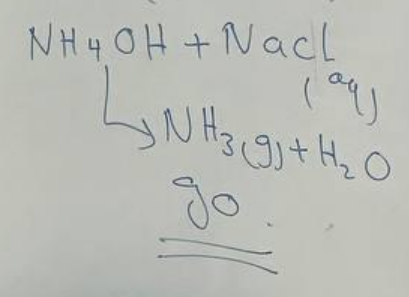 NH4OH + NaCl
(aq)
NH3(g) + H2O
go.